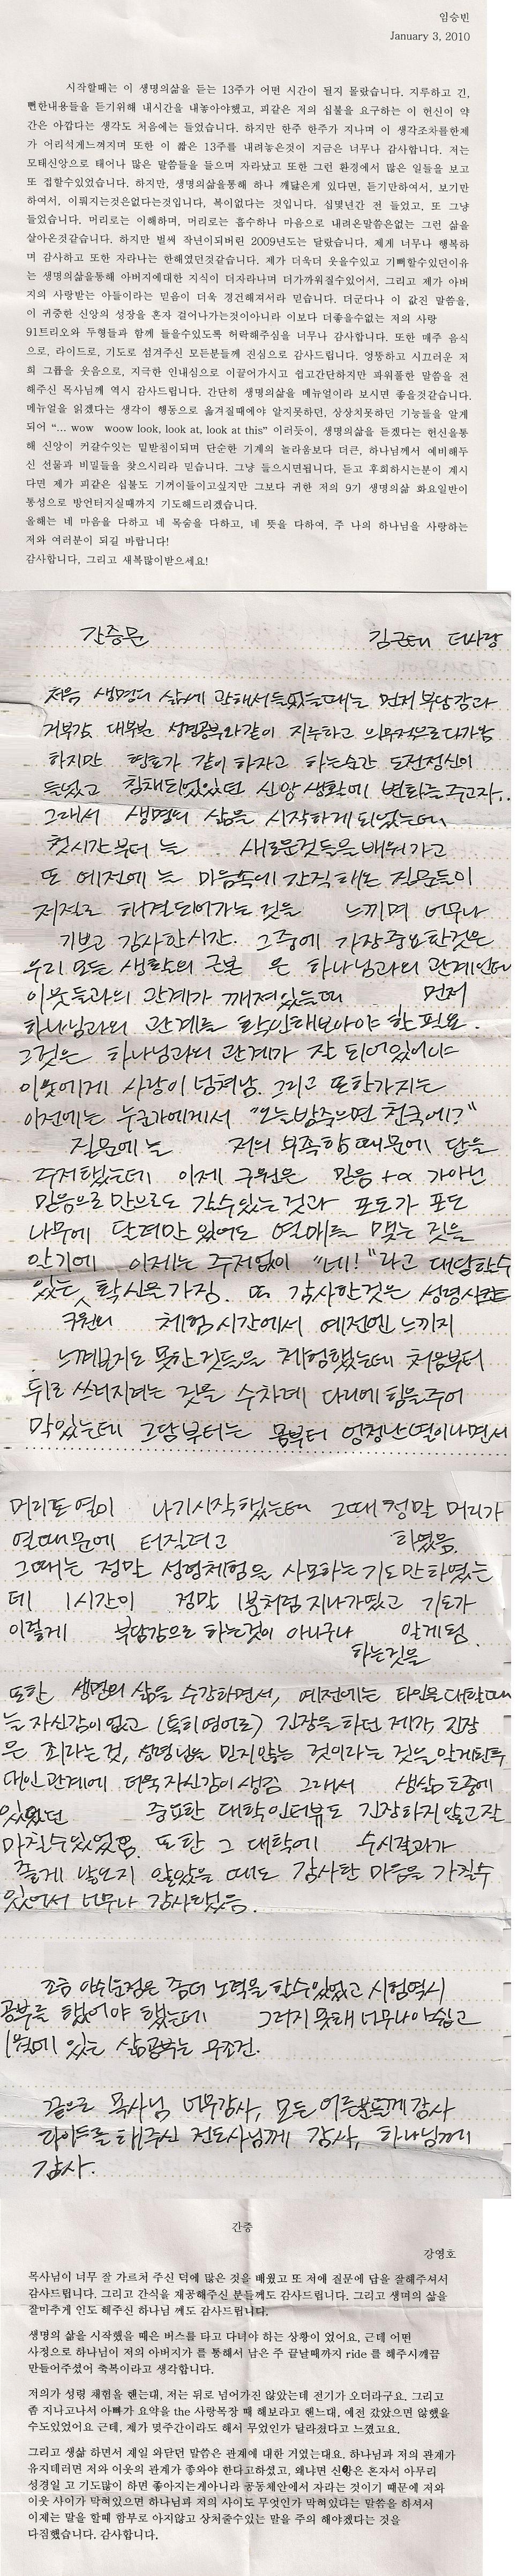 임승빈
January 3, 2010
시작할때는 이 생명의삶을 듣는 13주가 어떤 시간이 될지 몰랐습니다. 지루하고 긴,
뻔한내용들을 듣기위해 내시간을 내놓아야했고, 피같은 저의 십불을 요구하는 이 헌신이 약
간은 아깝다는 생각도 처음에는 들었습니다. 하지만 한주 한주가 지나며 이 생각조차를한제
가 어리석게느껴지며 또한 이 짧은 13주를 내려놓은것이 지금은 너무나 감사합니다. 저는
모태신앙으로 태어나 많은 말씀들을 들으며 자라났고 또한 그런 환경에서 많은 일들을 보고
또 접할수있었습니다. 하지만, 생명의삶을통해 하나 깨닳은게 있다면, 듣기만하여서, 보기만
하여서, 이뤄지는것은없다는것입니다, 복이없다는 것입니다. 십몇년간 전 들었고, 또 그냥
들었습니다. 머리로는 이해하며, 머리로는 흡수하나 마음으로 내려온말씀은없는 그런 삶을
살아온것같습니다. 하지만 벌써 작년이되버린 2009년도는 달랐습니다. 제게 너무나 행복하
며 감사하고 또한 자라나는 한해였던것같습니다. 제가 더욱더 웃을수있고 기뻐할수있던이유
는 생명의삶을통해 아버지에대한 지식이 더자라나며 더가까워질수있어서, 그리고 제가 아버
지의 사랑받는 아들이라는 믿음이 더욱 경건해져서라 믿습니다. 더군다나 이 값진 말씀을,
이 귀중한 신앙의 성장을 혼자 걸어나가는것이아니라 이보다 더좋을수없는 저의 사랑
91트리오와 두형들과 함께 들을수있도록 허락해주심을 너무나 감사합니다. 또한 매주 음식
으로, 라이드로, 기도로 섬겨주신 모든분들께 진심으로 감사드립니다. 엉뚱하고 시끄러운 저
희 그룹을 웃음으로, 지극한 인내심으로 이끌어가시고 쉽고간단하지만 파워풀한 말씀을 전
해주신 목사님께 역시 감사드립니다. 간단히 생명의삶을 메뉴얼이라 보시면 좋을것같습니다.
메뉴얼을 읽겠다는 생각이 행동으로 옮겨질때에야 알지못하던, 상상치못하던 기능들을 알게
되어 “... wow  woow look, look at, look at this” 이러듯이, 생명의삶을 듣겠다는 헌신을통
해 신앙이 커갈수있는 밑받침이되며 단순한 기계의 놀라움보다 더큰, 하나님께서 예비해두
신 선물과 비밀들을 찾으시리라 믿습니다. 그냥 들으시면됩니다. 듣고 후회하시는분이 계시
다면 제가 피같은 십불도 기꺼이들이고싶지만 그보다 귀한 저의 9기 생명의삶 화요일반이
통성으로 방언터지실때까지 기도해드리겠습니다.
올해는 네 마음을 다하고 네 목숨을 다하고, 네 뜻을 다하여, 주 나의 하나님을 사랑하는
저와 여러분이 되길 바랍니다!
감사합니다, 그리고 새복많이받으세요!
간증문 김근태 더사랑
처음 생명의 삶에 관해서들었을때는 먼저 부담감과
거부감, 대부분 성경공부와같이 지루하고 의무적으로 다가옴
하지만 영호가 같이 하자고 하는순간 도전정신이
들었고 침체되었있던 신앙 생활에 변화를 주고자..
그래서 생명의 삶을 시작하게 되었는데
첫시간 부터 늘 새로운것들을 배워가고
또 예전에 늘 마음속에 간직해논 질문들이
저절로 해결되어가는 것을 느끼며 너무나
기쁘고 감사한시간. 그중에 가장 중요한것은
우리 모든 생활의 근본 은 하나님과의 관계인데
이웃들과의 관계가 깨져있을때 먼저
하나님과의 관계를 확인해보아야 할 필요.
그것은 하나님과의 관계가 잘 되어있어야
이웃에게 사랑이 넘쳐남. 그리고 또한가지는
이전에는 누군가에게서 "오늘밤죽으면 천국에?"
질문에는 저의 부족함 때문에 답을
주저했는데 이제 구원은 믿음 +α 가아닌
믿음으로 만으로도 갈수있는 것과 포도가 포도
나무에 달려만 있어도 열매를 맺는 것을
알기에 이제는 주저없이 "네!"라고 대답할수
있는 확신을 가짐. 또 감사한것은 성령
체험 시간에서 예전엔 느끼지
느껴보지도 못한 것들을 체험했는데 처음부터
뒤로 쓰러지려는 것을 수차례 다리에 힘을주어
막있는데 그담부터는 몸부터 엄청난 열이나면서
머리로 열이 나기시작했는데 그때 정말 머리가
열때문에 터질려고 하였음.
그때는 정말 성령체험을 사모하는 기도만 하였는
데 1시간이 정말 1분처럼 지나가땄고 기도가
이렇게 부담감으로 하는것이 아니구나 알게됨.
하는것을
또한 생명의 삶을 수강하면서, 예전에는 타인을 대할때
는 자신감이 없고 (특히영어로) 긴장을 하던 제가, 긴장
은 죄라는 것, 성령님을 믿지않는 것이라는 것을 알게된후
대인관계에 더욱 자신감이 생김 그래서 생삶 도중에
있었던 중요한 대학인터뷰도 긴장하지 않고 잘
마칠수있었음. 또한 그 대학에 수시결과가
좋게 나오지 않았을 때도 감사한 마음을 가질수
있어서 너무나 감사했음.
조금 아쉬운점은 좀더 노력을 할수있었고 시험역시
공부를 했어야 했는데 그러지 못해 너무나 아쉽고
1월에 있는 삶공부는 무조건.
끝으로 목사님 너무감사, 모든 어른분들께 감사
라이드를 해주신 전도사님께 감사, 하나님께
감사.
간증
강영호
목사님이 너무 잘 가르쳐 주신 덕에 많은 것을 배웠고 또 저에 질문에 답을 잘해주셔서
감사드립니다. 그리고 간식을 제공해주신 분들께도 감사드립니다. 그리고 생며의 삶을
잘미추게 인도 해주신 하나님 께도 감사드립니다.
생명의 삶을 시작했을 때은 버스를 타고 다녀야 하는 상황이 었어요, 근데 어떤
사정으로 하나님이 저의 아버지가 를 통해서 남은 주 끝날때까지 ride 를 해주시께끔
만들어주셨어 축복이라고 생각합니다.
저의가 성령 체험을 핸는대, 저는 뒤로 넘어가진 않았는데 전기가 오더라구요. 그리고
좀 지나고나서 아빠가 요약을 the 사랑목장 때 해보라고 핸느대, 예전 갔았으면 않했을
수도있었어요 근데, 제가 몆주간이라도 해서 무엇인가 달라졌다고 느꼈고요.
그리고 생삶 하면서 제일 와닫던 말씀은 관계에 대한 거였는대요. 하나님과 저의 관계가
유지데러면 저와 이웃의 관계가 좋와야 한다고하셨고, 왜냐면 신앙은 혼자서 아무리
성경일 고 기도많이 하면 좋아지는게아니라 공동체안에서 자라는 것이기 때문에 저와
이웃 사이가 막혀있으면 하나님과 저의 사이도 무엇인가 막혀있다는 말씀을 하셔서
이제는 말을 할때 함부로 아지않고 상처줄수있는 말을 주의 해야겠다는 것을
다짐했습니다. 감사합니다.